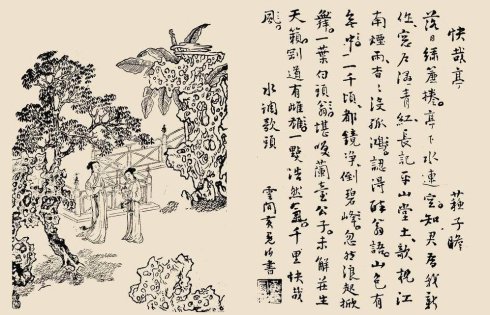 快哉亭 蘇子瞻
落日繡簾捲亭下水連空知君爲我新
作窓戶濕青紅長記平山堂上欹枕江
南煙雨杳〻沒孤鴻認得醉翁語山色有
無中一千頃都鏡淨倒碧峰忽然浪起掀
舞一葉白頭翁堪笑蘭臺公子未解莊生
天籟剛道有雌雄一點浩然氣千里快哉
風 水調歌頭
雲間黃冕仲書